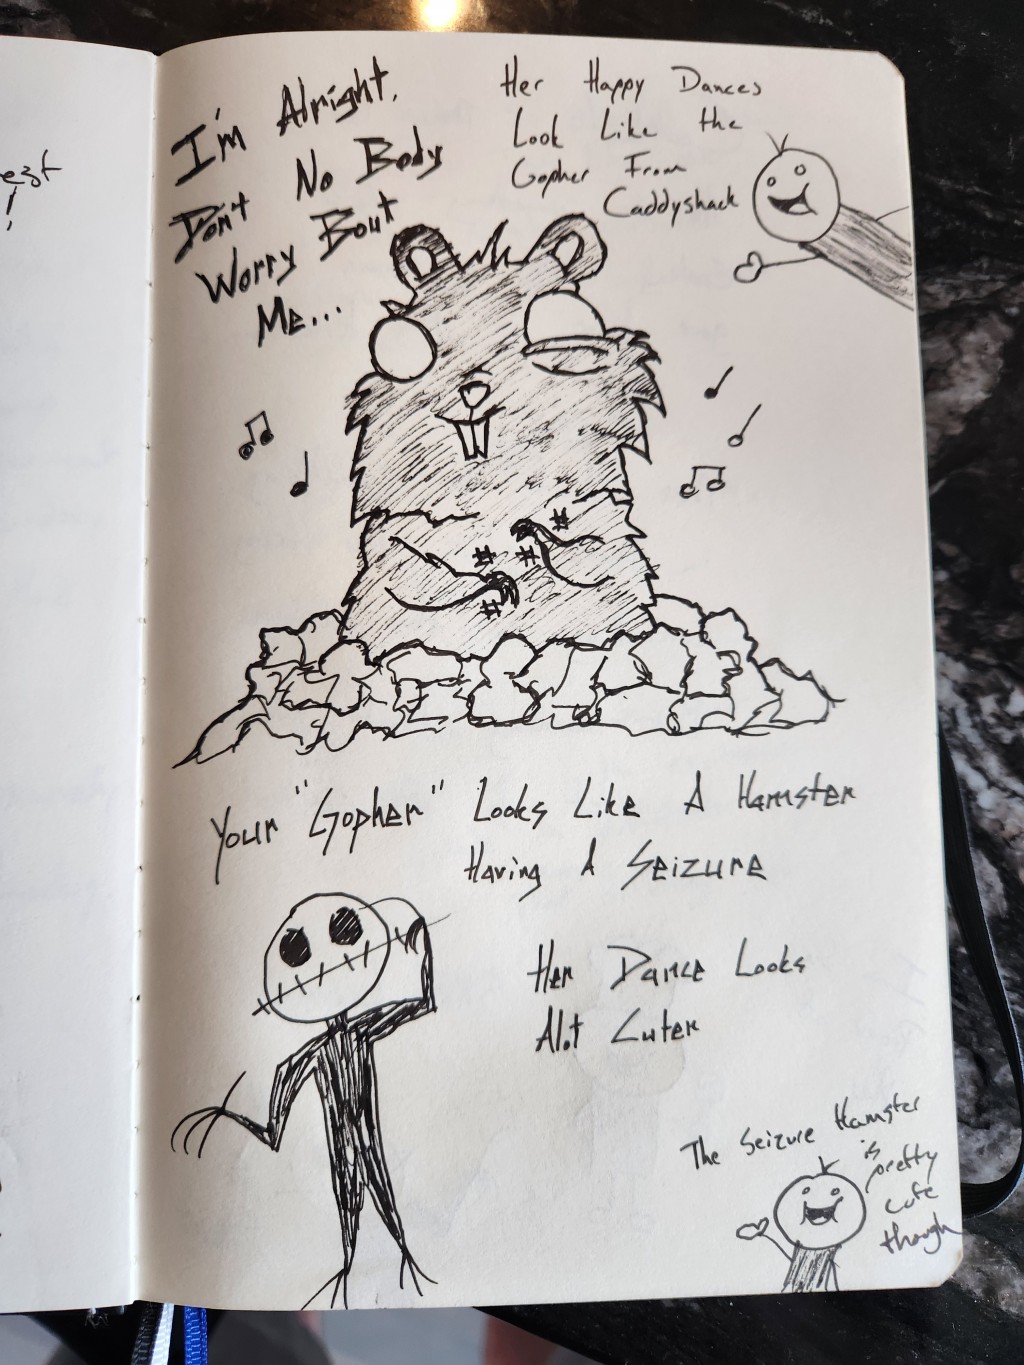 est
!
I'm Alright.
Don't No Body
Worry Bout
Me...
Her Happy Dances
Look Like the
Gopher From
Caddyshack
Your "Gopher" Looks Like A Hamster
Having A Seizure
Her Dance Looks
Alot Cuter
The Seizure Hamster
is
pretty
cute
though